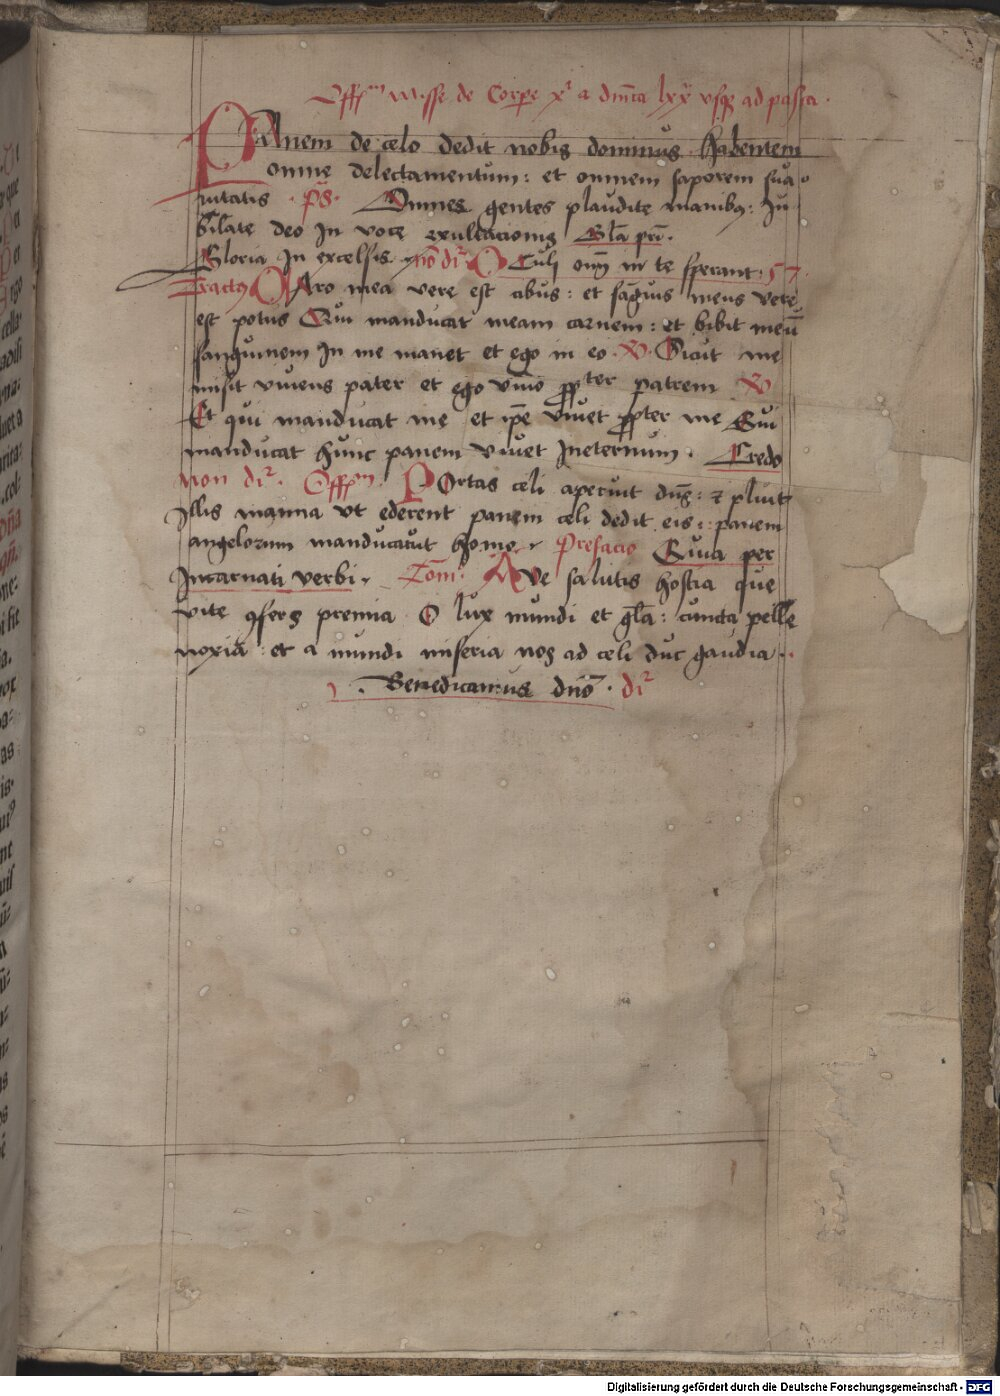 Offm Misse de Corpe xi a dmca lxx usq ad pasca.
PAnem de celo dedit nobis dominus habentem
omne delectamentum: et omnem saporem sua-
uitatis. ps. Omnes gentes plaudite manibus: Ju-
bilate deo in voce exultacionis Gla pri.
Gloria in excelsis no dir OCuli oim in te sperant. 57
Tractus CAro mea vere est cibus: et sanguis meus vere
est potus Qui manducat meam carnem: et bibit meū
sanguinem In me manet et ego in eo. V. Sicut me
misit viuens pater et ego viuo propter patrem V
Et qui manducat me et ipe viuet propter me Qui
manducat hunc panem viuet Ineternum. Credo
Non dir. Offm. POrtas celi aperuit dns: et pluit
Illis manna vt ederent panem celi dedit eis: panem
angelorum manducauit homo. Prefacio Quia per
Incarnati verbi. Com. AVe salutis hostia que
vite confers premia O lux mundi et gla: cuncta pelle
noxia et a mundi miseria nos ad celi duc gaudia.
Benedicamus dno. dir
Digitalisierung gefördert durch die Deutsche Forschungsgemeinschaft - DFG